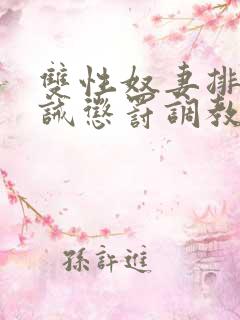 雙性奴妻排
誡懲罰調教
孫許進